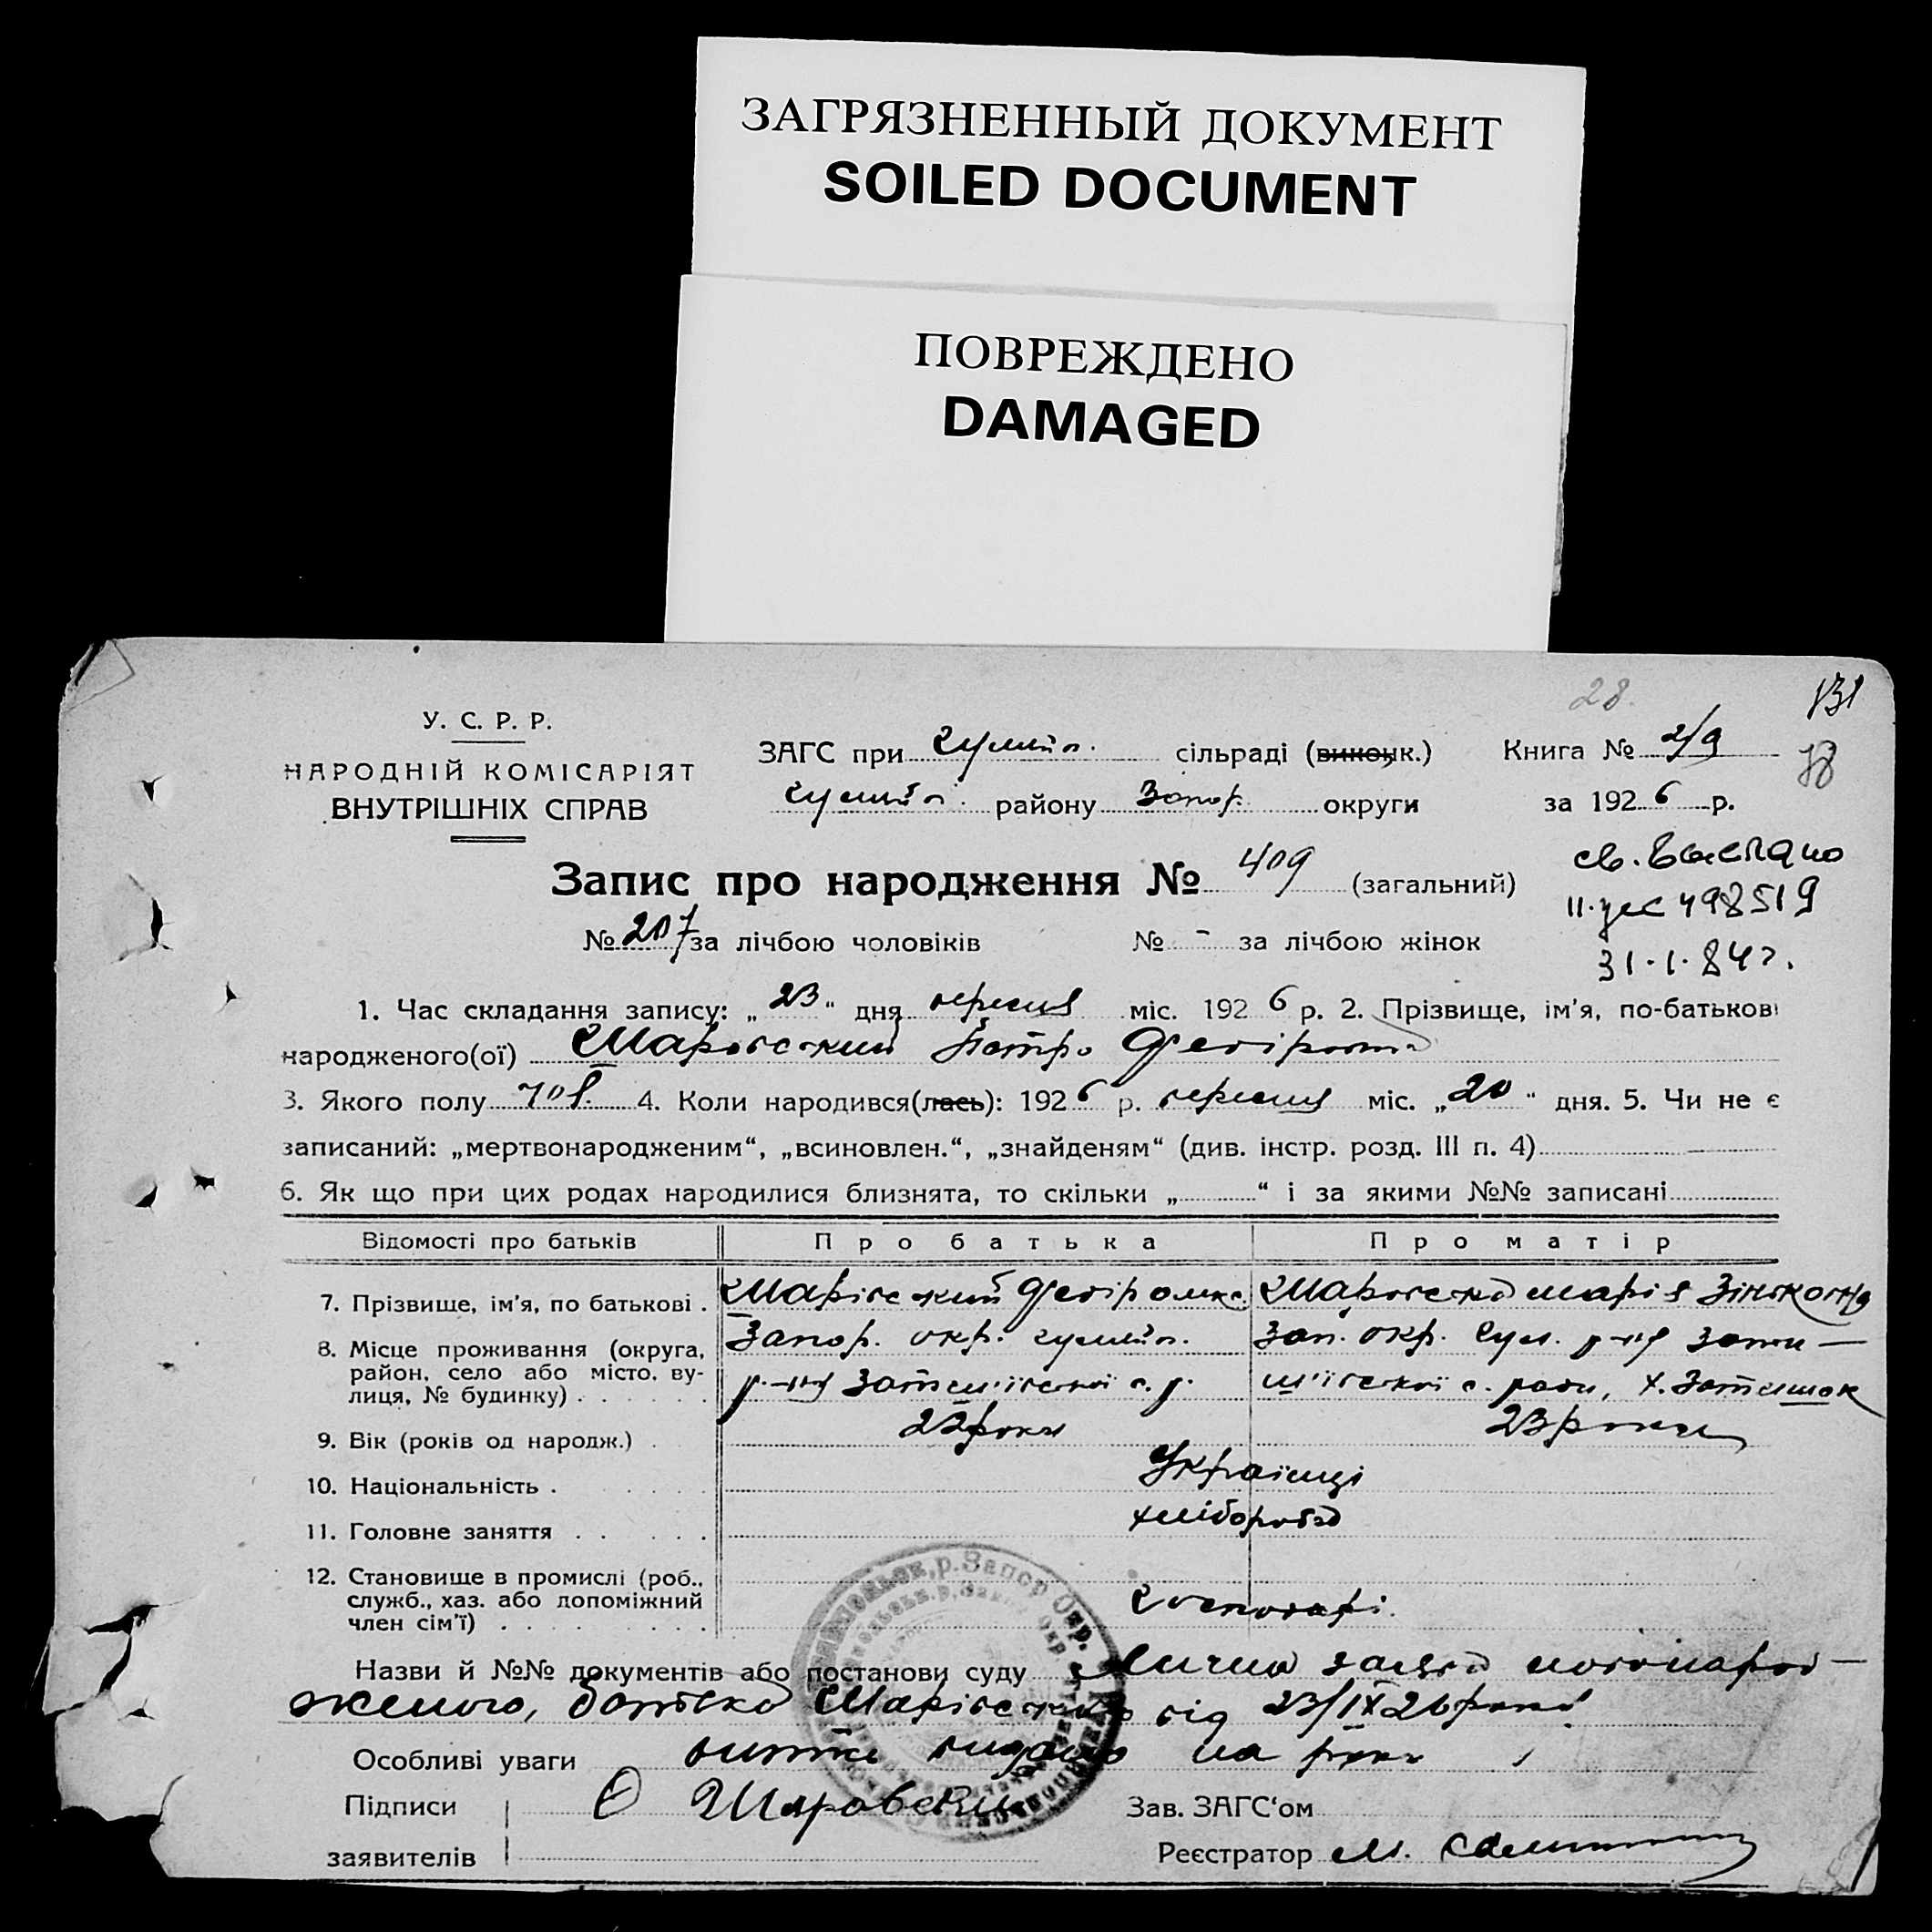 ЗАГРЯЗНЕННЫЙ ДОКУМЕНТ
SOILED DOCUMENT
ПОВРЕЖДЕНО
DAMAGED
28.
131
У. С. Р. Р.
НАРОДНІЙ КОМІСАРІЯТ
ВНУТРІШНІХ СПРАВ
ЗАГС при Гуляйп. сільраді (виконк.) Книга № 2/9
Гуляйп. району Запор. округи за 1926 р.
Запис про народження № 409 (загальний)
№ 207 за лічбою чоловіків № - за лічбою жінок
498519
31.1.84г.
1. Час складання запису: „23“ дня вересня міс. 1926 р. 2. Прізвище, ім'я, по-батькові
народженого(ої) Шаровський Петро
3. Якого полу чол. 4. Коли народився(лась): 1926 р. вересня міс. „20“ дня. 5. Чи не є
записаний: „мертвонародженим“, „всиновлен.“, „знайденям“ (див. інстр. розд. III п. 4)
6. Як що при цих родах народилися близнята, то скільки „ “ і за якими №№ записані
Відомості про батьків Про батька Про матір
7. Прізвище, ім'я, по батькові . Шарівський Шаровська Марія Зіньковна
8. Місце проживання (округа, район, село або місто, вулиця, № будинку) Запор. окр. Гуляйп. Зап. окр. Гул. р-ну Зати-
р-ну с. р. ш'ївської с. ради, х. Затишок
9. Вік (років од народж.) роки 23 роки
10. Національність . Українці
11. Головне заняття . . хлібороби
12. Становище в промислі (роб., служб., хаз. або допоміжний член сім'ї) господарі.
Назви й №№ документів або постанови суду Лична заява новонарод-
женого, батька Шарівського від 23/IX 26 року
Особливі уваги витяг видано на руки
Підписи Шаровский Зав. ЗАГС‘ом
заявителів Реєстратор М.